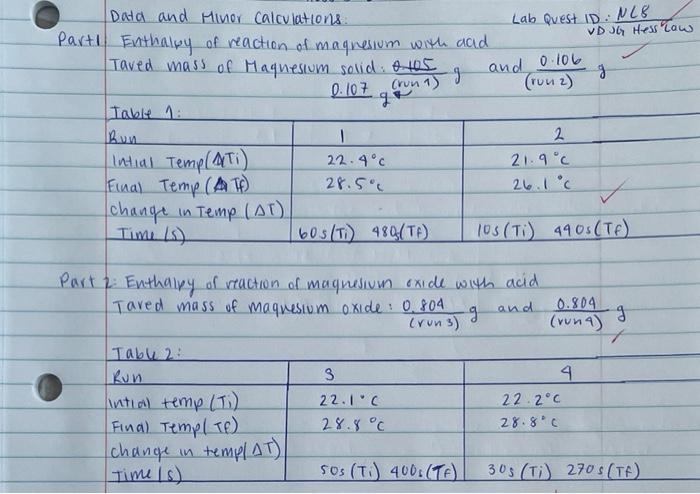 Data and Minor Calculations:
Lab Quest ID: NLB
VD JG Hess' Law
Part 1: Enthalpy of reaction of magnesium with acid
Tared mass of Magnesium solid: 0.105 g and 0.106 g
(run 1) (run 2)
0.107 g
Table 1:
Run 1 2
Intial Temp (ΔTi) 22.4°C 21.9°C
Final Temp (ΔTf) 28.5°C 26.1°C
Change in Temp (ΔT)
Time (s) 60s (Ti) 480s (Tf) 10s (Ti) 440s (Tf)
Part 2: Enthalpy of reaction of magnesium oxide with acid
Tared mass of magnesium oxide: 0.804 g and 0.804 g
(run 3) (run 4)
Table 2:
Run 3 4
Intial temp (Ti) 22.1°C 22.2°C
Final Temp (Tf) 28.8°C 28.8°C
Change in temp (ΔT)
Time (s) 50s (Ti) 400s (Tf) 30s (Ti) 270s (Tf)